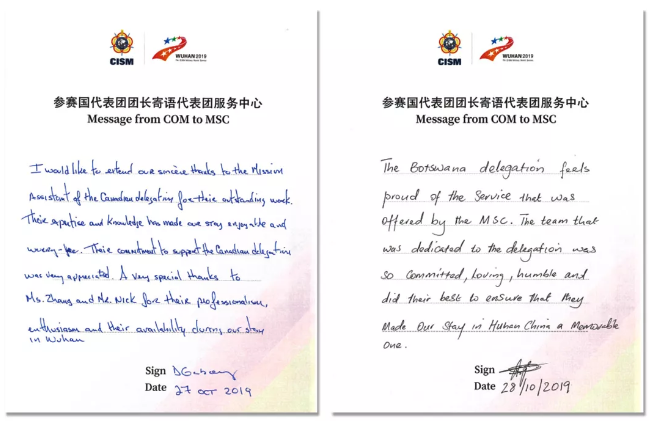 CISM
WUHAN 2019
参赛国代表团团长寄语代表团服务中心
Message from COM to MSC
I would like to extend our sincere thanks to the Mission
Assistant of the Canadian delegation for their outstanding work.
Their expertise and knowledge has made our stay enjoyable and
worry-free. Their commitment to support the Canadian delegation
was very appreciated. A very special thanks to
Ms. Zhang and Mr. Nick for their professionalism,
enthusiasm and their availability during our stay
in Wuhan
Sign
Date 27 OCT 2019
CISM
WUHAN 2019
参赛国代表团团长寄语代表团服务中心
Message from COM to MSC
The Botswana delegation feels
proud of the Service that was
offered by the MSC. The team that
was dedicated to the delegation was
so committed, loving, humble and
did their best to ensure that they
Made Our Stay in Huhan China a Memorable
one.
Sign
Date 28/10/2019